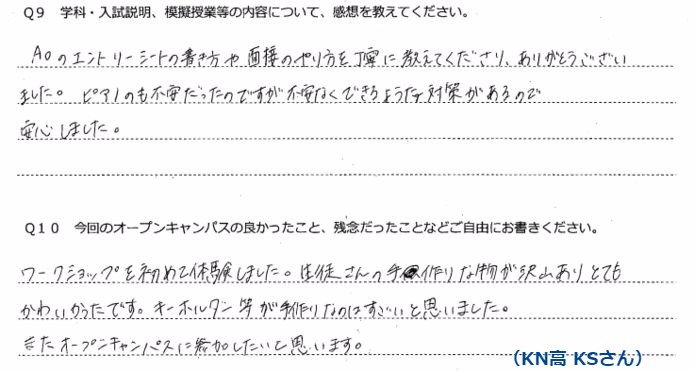 Q9 学科・入試説明、模擬授業等の内容について、感想を教えてください。
AOのエントリーシートの書き方や面接のやり方を丁寧に教えてくださり、ありがとうござい
ました。ピアノのも不安だったのですが不安なくできるような対策があるので
安心しました。
Q10 今回のオープンキャンパスの良かったこと、残念だったことなどご自由にお書きください。
ワークショップを初めて体験しました。生徒さんの手作りな物が沢山ありとても
かわいかったです。キーホルダー等が手作りなのはすごいと思いました。
またオープンキャンパスに参加したいと思います。
(KN高 KSさん)